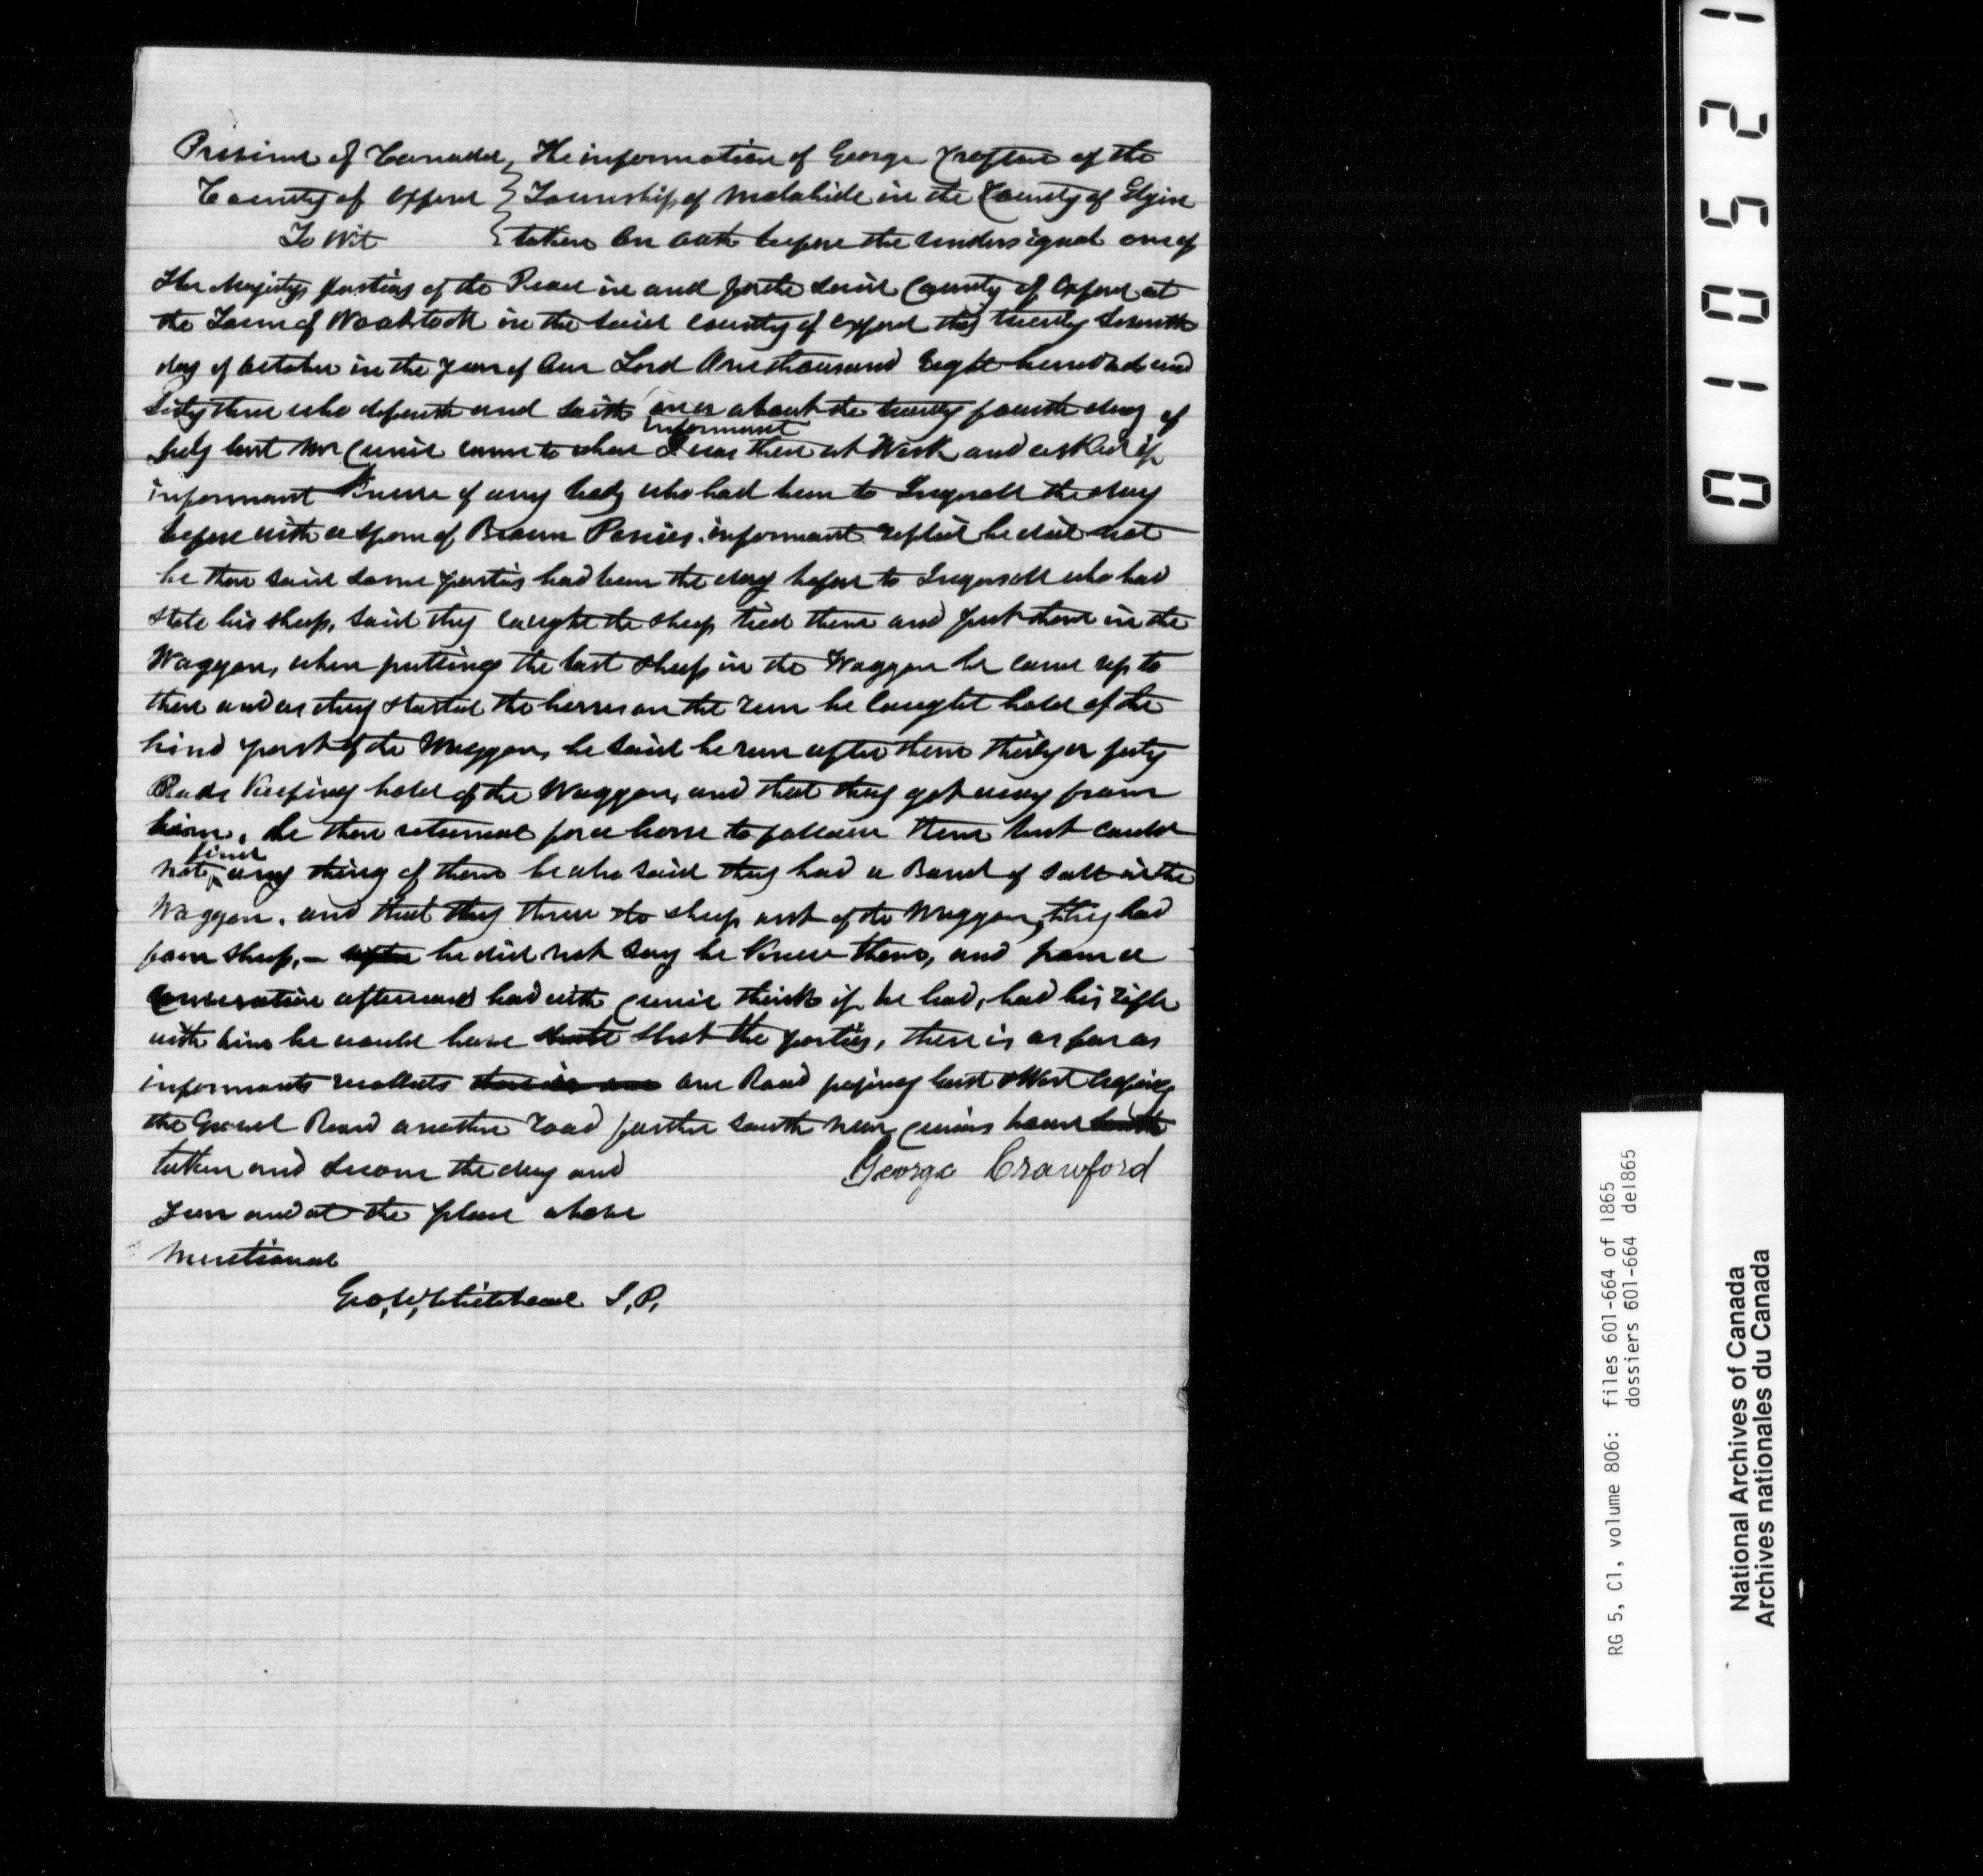 Province of Canada } The information of George Crafford of the
County of Oxford } Township of Malahide in the County of Elgin
To Wit } taken on oath before the undersigned one of
Her Majestys Justices of the Peace in and for the said County of Oxford at
the Town of Woodstock in the said County of Oxford this twenty seventh
day of October in the year of Our Lord One thousand Eight hundred and
Sixty three who deposeth and saith on or about the twenty fourth day of
July last Mr Cunie came to where informant was then at Work and asked if
informant Knew of any body who had been to Ingersoll the day
before with a span of Brown Ponies. informant replied he did not
he then said some parties had been the day before to Ingersoll who had
stole his sheep, said they caught the sheep tied them and put them in the
Waggon, when putting the last sheep in the Waggon he came up to
them and as they started the horses on the run he caught hold of the
hind part of the Waggon, he said he run after them thirty or forty
Rods Keeping hold of the Waggon, and that they got away from
him, he then returned for a horse to follow them but could
not find any thing of them he also said they had a Barrel of Salt in the
Waggon. and that they threw the sheep out of the Waggon, they had
four sheep, - after he did not say he Knew them, and from a
Conversation afterward had with Cunie think if he had, had his rifle
with him he would have shot the parties, there is as far as
informants recollects there is one one Road passing East & West crossing
the Gravel Road another road further south near Cunies house
taken and sworn the day and
year and at the place above
Mentioned
George Crawford
Geo, W, Whitehead J, P,
010521
RG 5, C1, volume 806: files 601-664 of 1865
dossiers 601-664 de1865
National Archives of Canada
Archives nationales du Canada